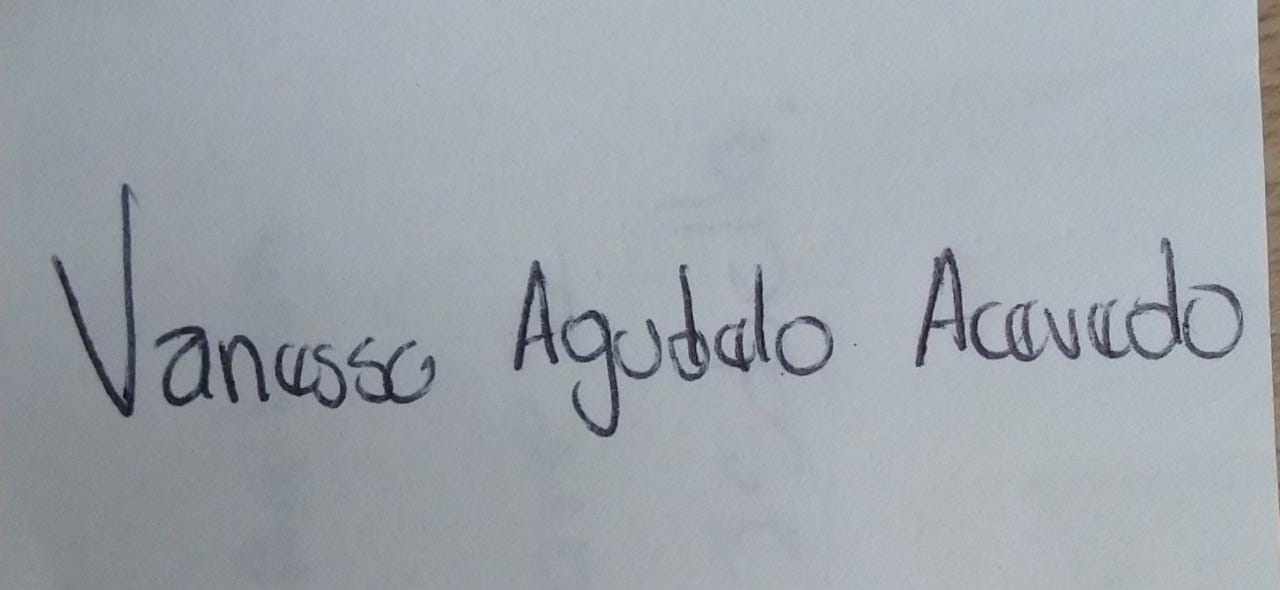 Vanessa Agudelo Acevedo